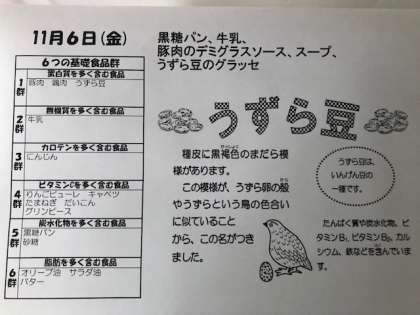 11月6日(金)
黒糖パン、牛乳、
豚肉のデミグラスソース、スープ、
うずら豆のグラッセ
6つの基礎食品群
蛋白質を多く含む食品
1群
豚肉 鶏肉 うずら豆
無機質を多く含む食品
2群
牛乳
カロテンを多く含む食品
3群
にんじん
ビタミンCを多く含む食品
4群
りんごピューレ キャベツ
たまねぎ だいこん
グリンピース
炭水化物を多く含む食品
5群
黒糖パン
砂糖
脂肪を多く含む食品
6群
オリーブ油 サラダ油
バター
うずら豆
種皮に黒褐色のまだら模
様があります。
この模様が、うずら卵の殻
やうずらという鳥の色合い
に似ていること
から、この名がつき
ました。
うずら豆は、
いんげん豆の
一種です。
たんぱく質や炭水化物、ビ
タミンB₁、ビタミンB₂、カル
シウム、鉄などを含んでいま
す。